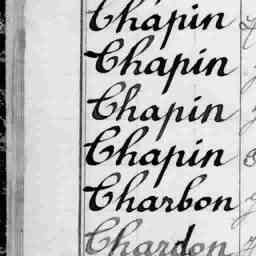 Chapin
Chapin
Chapin
Chapin
Charbon
Chardon